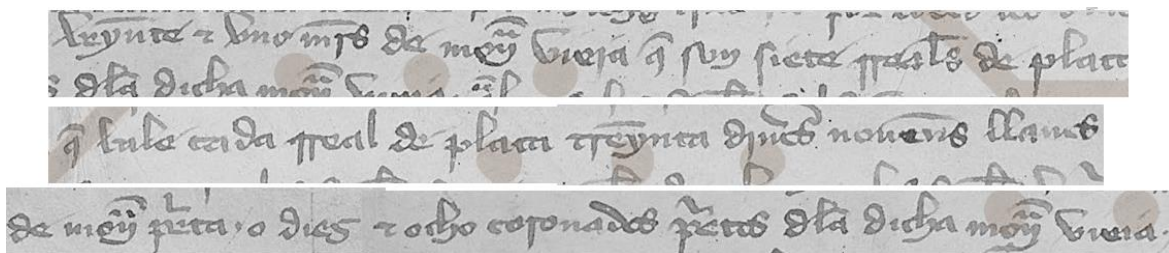 veynte τ vno mrs de moȳ vieja q̄ son siete rreals de plata
q̄ bale cada rreal de plata treynta dineros nouens llanos
de moȳ prieta o diez τ ocho coronados pretos dla dicha moȳ vieja